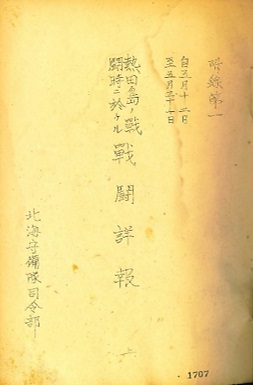 附録第一
自五月十二日
至五月三十一日
熱田島ノ戰
闘時ニ於ケル
戰闘詳報
北海守備隊司令部
1707